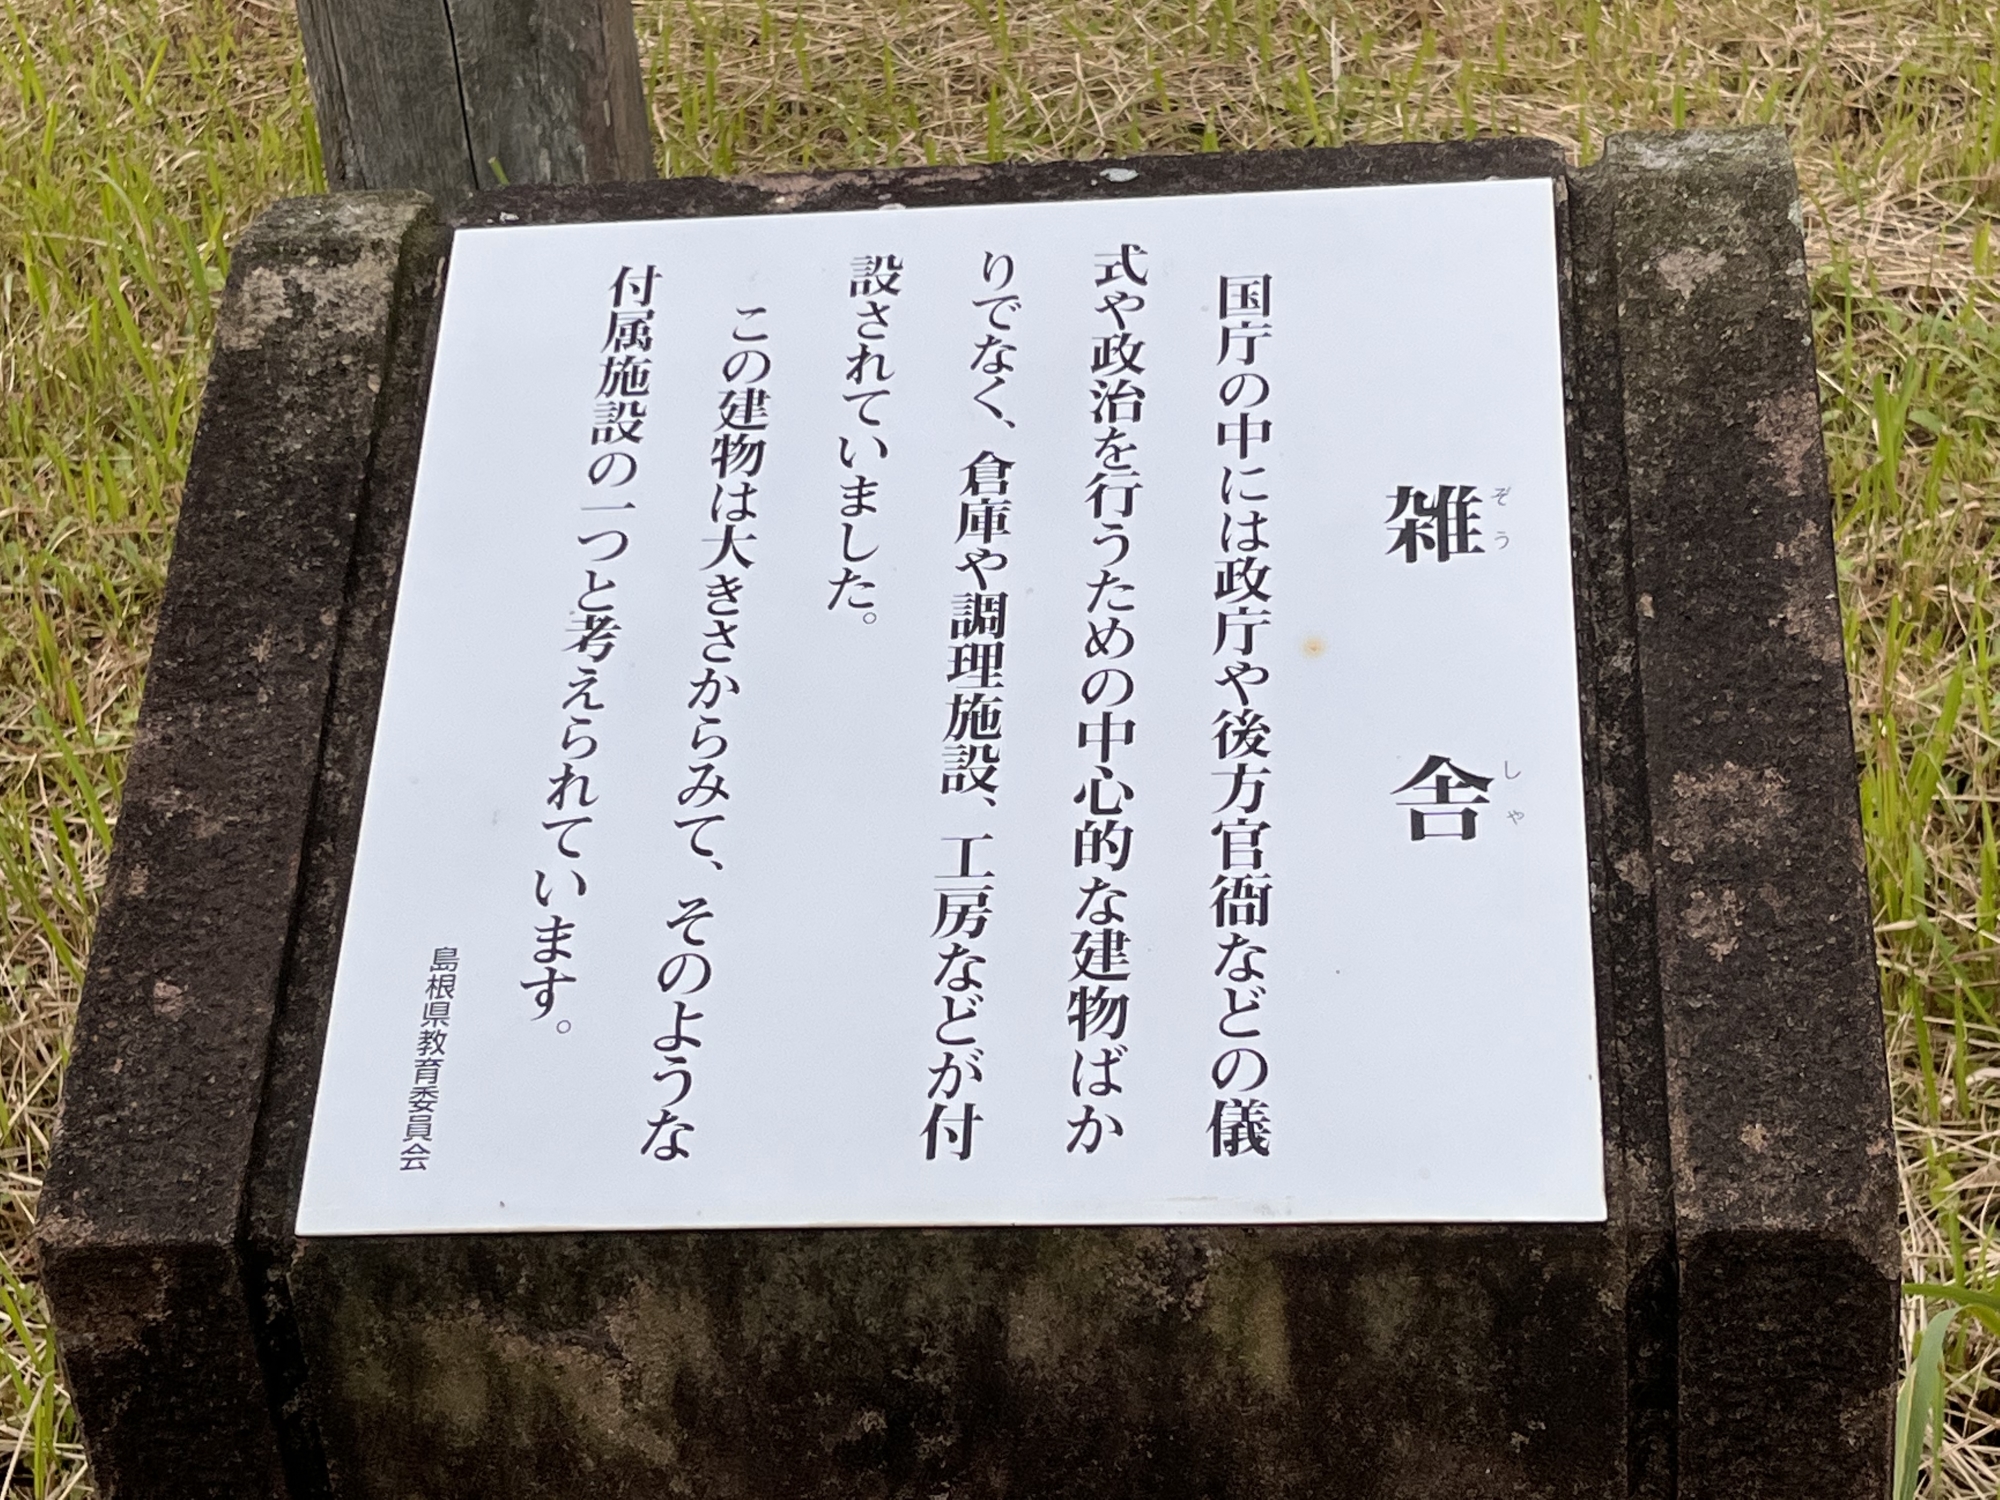 雑舎
ぞうしゃ
国庁の中には政庁や後方官衙などの儀
式や政治を行うための中心的な建物ばか
りでなく、倉庫や調理施設、工房などが付
設されていました。
この建物は大きさからみて、そのような
付属施設の一つと考えられています。
島根県教育委員会